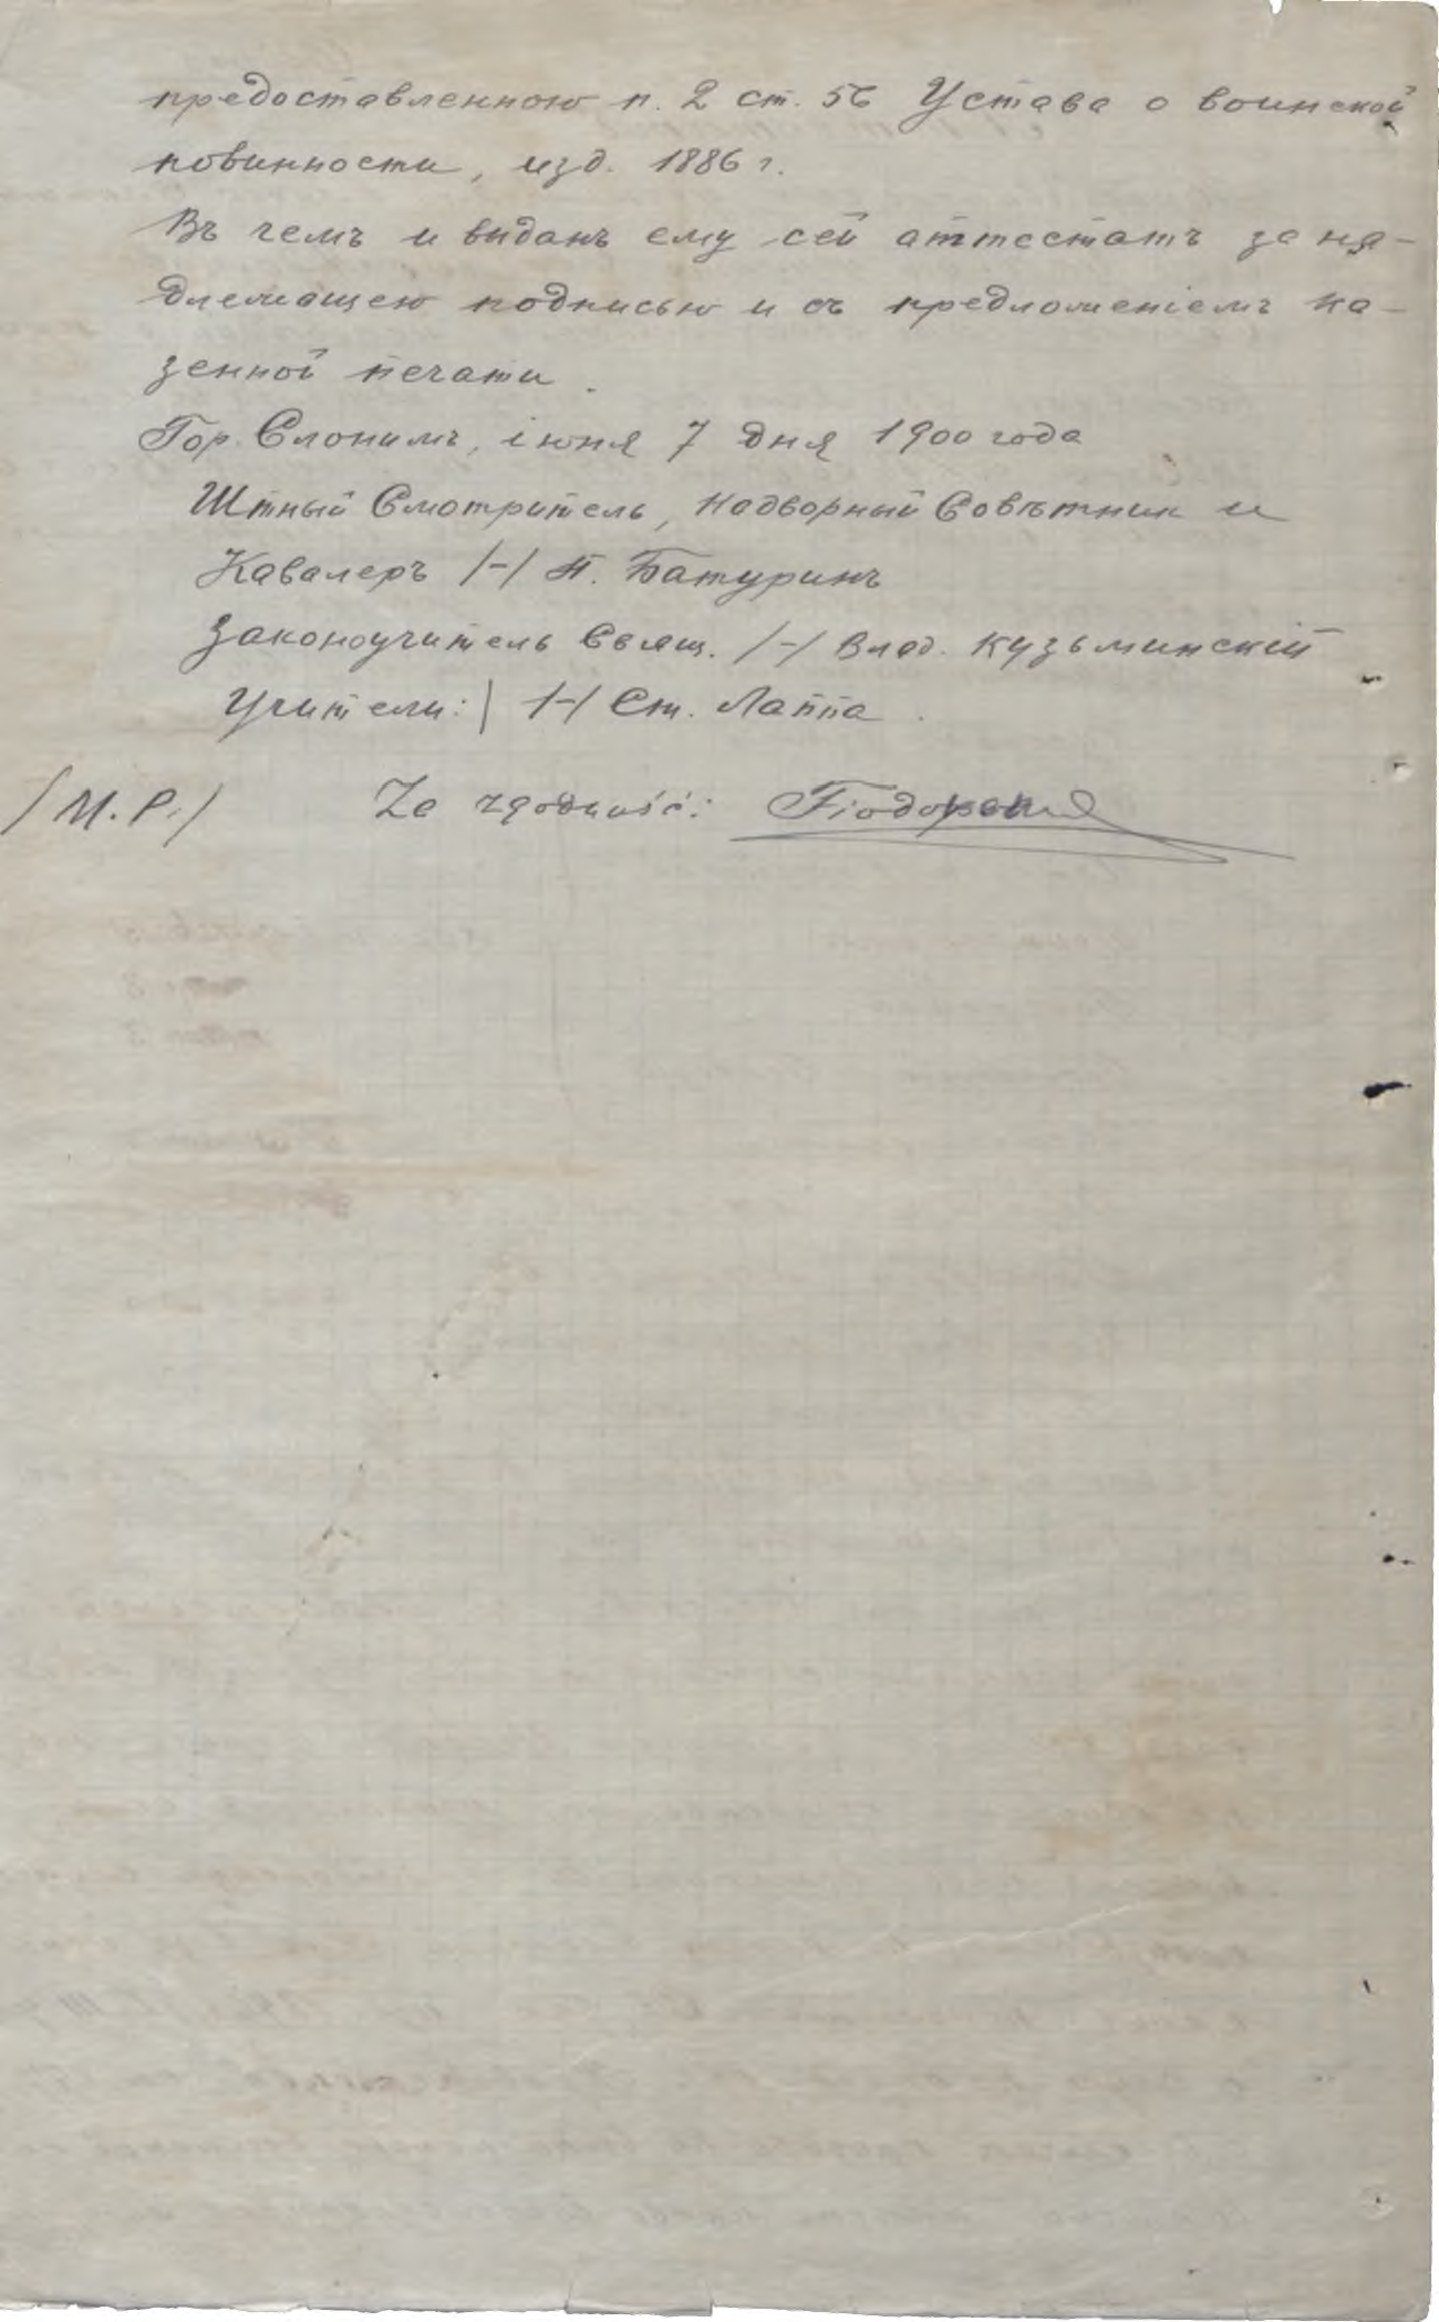 предоставленною п. 2 ст. 56 Устава о воинской
повинности, изд. 1886 г.
Въ чемъ и выданъ ему сей аттестатъ за на-
длежащею подписью и съ предложеніемъ ка-
зенной печати.
Гор. Слонимъ, іюня 7 дня 1900 года
Штный Смотритель, Надворный Совѣтник и
Кавалеръ /-/ П. Батуринъ
Законоучитель Свящ. /-/ Влад. Кузьминскій
Учители: | /-/ Ст. Лаппа.
/М.Р./ Za zgodność: